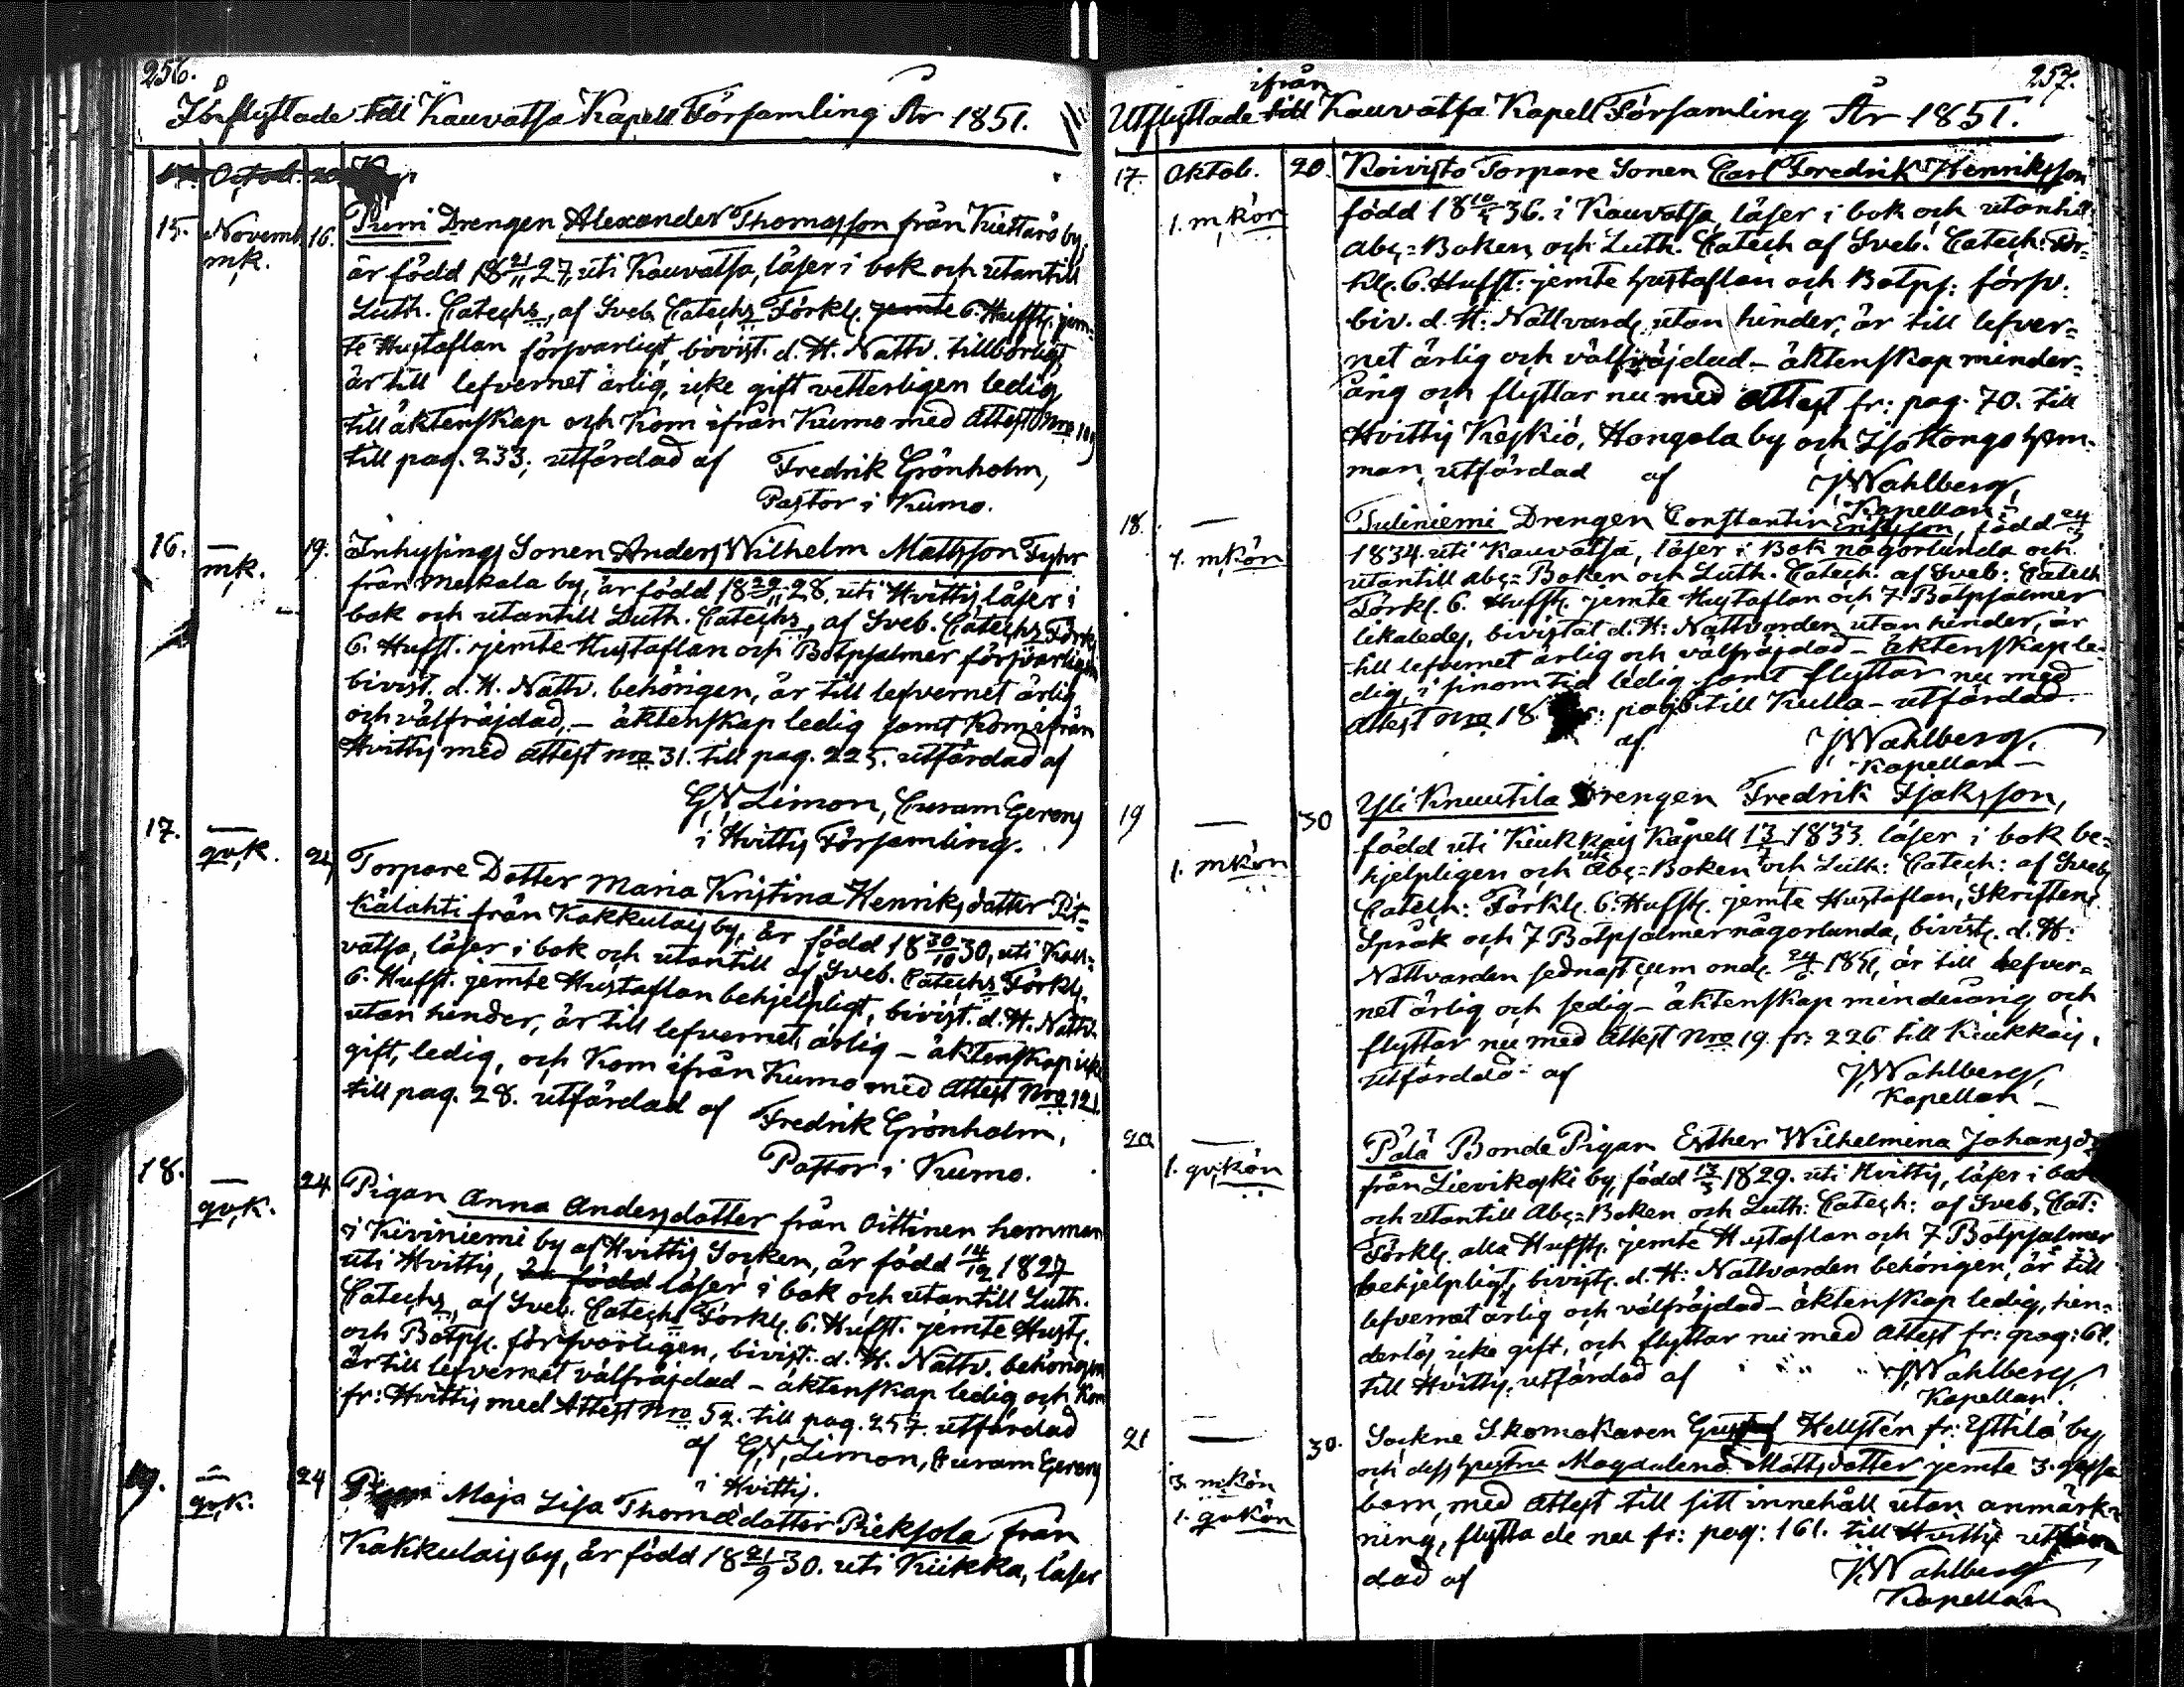 256.
Inflyttade till Kauvatsa Kapell Församling År 1851.
15. Novemb. 16. Purri Drengen Alexander Thomasson från Kiettarö by,
mk. är född 18 21/11 27, uti Kauvatsa, läser i bok och utantill
Luth. Cateches, af Sveb. Cateches Förkl. jemte 6. Hufst. jem-
te Hustaflan försvarligt, bivist. d. H. Nattv. tillbörligt,
är till lefvernet ärlig, icke gift vetterligen ledig
till äktenskap och kom ifrån Kumo med Attest Nro 119
till pag. 233; utfärdad af Fredrik Grönholm,
Pastor i Kumo.
16. — 19. Inhysings Sonen Anders Wilhelm Mattsson Fyhr
mk. från Meskala by, är född 18 29/11 28, uti Hvittis, läser i
bok och utantill Luth. Cateches, af Sveb. Cateches Förkl.
6. Hufst. jemte Hustaflan och Botpsalmer försvarligen
bivist. d. H. Nattv. behörigen, är till lefvernet ärlig
och välfräjdad, – äktenskap ledig samt kom ifrån
Hvittis med Attest Nro 31. till pag. 225. utfärdad af
G. N. Limon, Curam Gerens
i Hvittis Församling.
17. — 24 Torpare Dotter Maria Kristina Henriksdotter Pit-
qvk. kälahti från Kakkulais by, är född 18 30/10 30, uti Kau-
vatsa, läser i bok och utantill af Sveb. Cateches Förkl.
6. Hufst. jemte Hustaflan behjelpligt, bivist. d. H. Nattv.
utan hinder, är till lefvernet ärlig – äktenskap icke
gift, ledig, och kom ifrån Kumo med Attest Nro 121.
till pag. 28. utfärdad af Fredrik Grönholm,
Pastor i Kumo.
18. — 24 Pigan Anna Andersdotter från Oittinen hemman
qvk. i Kiviniemi by af Hvittis Socken, är född 14/12 1827
uti Hvittis, är född läser i bok och utantill Luth.
Cateches, af Sveb. Cateches Förkl. 6. Hufst. jemte Hust.
och Botps. försvarligen, bivist. d. H. Nattv. behörigen
är till lefvernet välfräjdad – äktenskap ledig och kom
fr: Hvittis med Attest Nro 52. till pag. 257. utfärdad
af G. N. Limon, Curam Gerens
i Hvittis.
19. — 24 Pigan Maja Lisa Thomædotter Pieksola från
qvk. Kakkulais by, är född 18 21/9 30. uti Kiikka, läser
257.
ifrån
Utflyttade till Kauvatsa Kapell Församling År 1851.
17. Oktob. 20. Koivisto Torpare Sonen Carl Fredrik Henriksson
1. mkön född 18 10/5 36. i Kauvatsa, läser i bok och utantill
Abc-Boken och Luth. Catech af Sveb. Catech: För-
kl. 6. Hufst: jemte Hustaflan och Botps: försv.
biv. d. H: Nattvard, utan hinder, är till lefver-
net ärlig och välfräjdad – äktenskap minder-
årig och flyttar nu med Attest fr: pag. 70. till
Hvittis Keskiö, Hongola by och Iso Kongo hem-
man, utfärdad af J. Wahlberg,
Kapellan
18. — Tuliniemi Drengen Constantin Ericsson, född 24
1. mkön 1834. uti Kauvatsa, läser i Bok någorlunda och
utantill Abc-Boken och Luth. Catech. af Sveb: Catech
Förkl. 6. Hufst. jemte Hustaflan och 7 Botpsalmer
likaledes, bivistat d. H: Nattvarden utan hinder, är
till lefvernet ärlig och välfräjdad – äktenskap le-
dig, i sinom tid ledig samt flyttar nu med
Attest Nro 18. till Kulla – utfärdad.
af J. Wahlberg,
Kapellan —
19 — 30 Yli Knuutila Drengen Fredrik Isaksson,
1. mkön född uti Kiukkais Kapell 13/7 1833. läser i bok be-
hjelpligen och uti Abc-Boken och Luth: Catech: af Sveb
Catech: Förkl. 6. Hufst. jemte Hustaflan, Skriftens
Språk och 7 Botpsalmer någorlunda, bivist. d. H.
Nattvarden sednast 1851, är till lefver-
net ärlig och sedig – äktenskap minderårig och
flyttar nu med Attest Nro 19. fr: 226 till Kiukkais,
utfärdad af J. Wahlberg,
Kapellan —
20 — Pälä Bonde Pigan Esther Wilhelmina Johansd
1. qvkön från Lievikoski by, född 13/5 1829. uti Hvittis, läser i bok
och utantill Abc-Boken och Luth: Catech: af Sveb, Cat:
Förkl. alla Hufst. jemte Hustaflan och 7 Botpsalmer
behjelpligt, bivist. d. H: Nattvarden behörigen, är till
lefvernet ärlig och välfräjdad – äktenskap ledig, hin-
derlös, icke gift, och flyttar nu med Attest fr: pag: 61.
till Hvittis, utfärdad af J. Wahlberg,
Kapellan.
21 — 30. Sockne Skomakaren Gustaf Hellstén fr: Yttilä by
och dess hustru Magdalena Mattsdotter jemte 3. dessa
3. mkön barn, med Attest till sitt innehåll utan anmärk-
1. qvkön ning, flytta de nu fr: pag: 161. till Hvittis utfär-
dad af J. Wahlberg
Kapellan